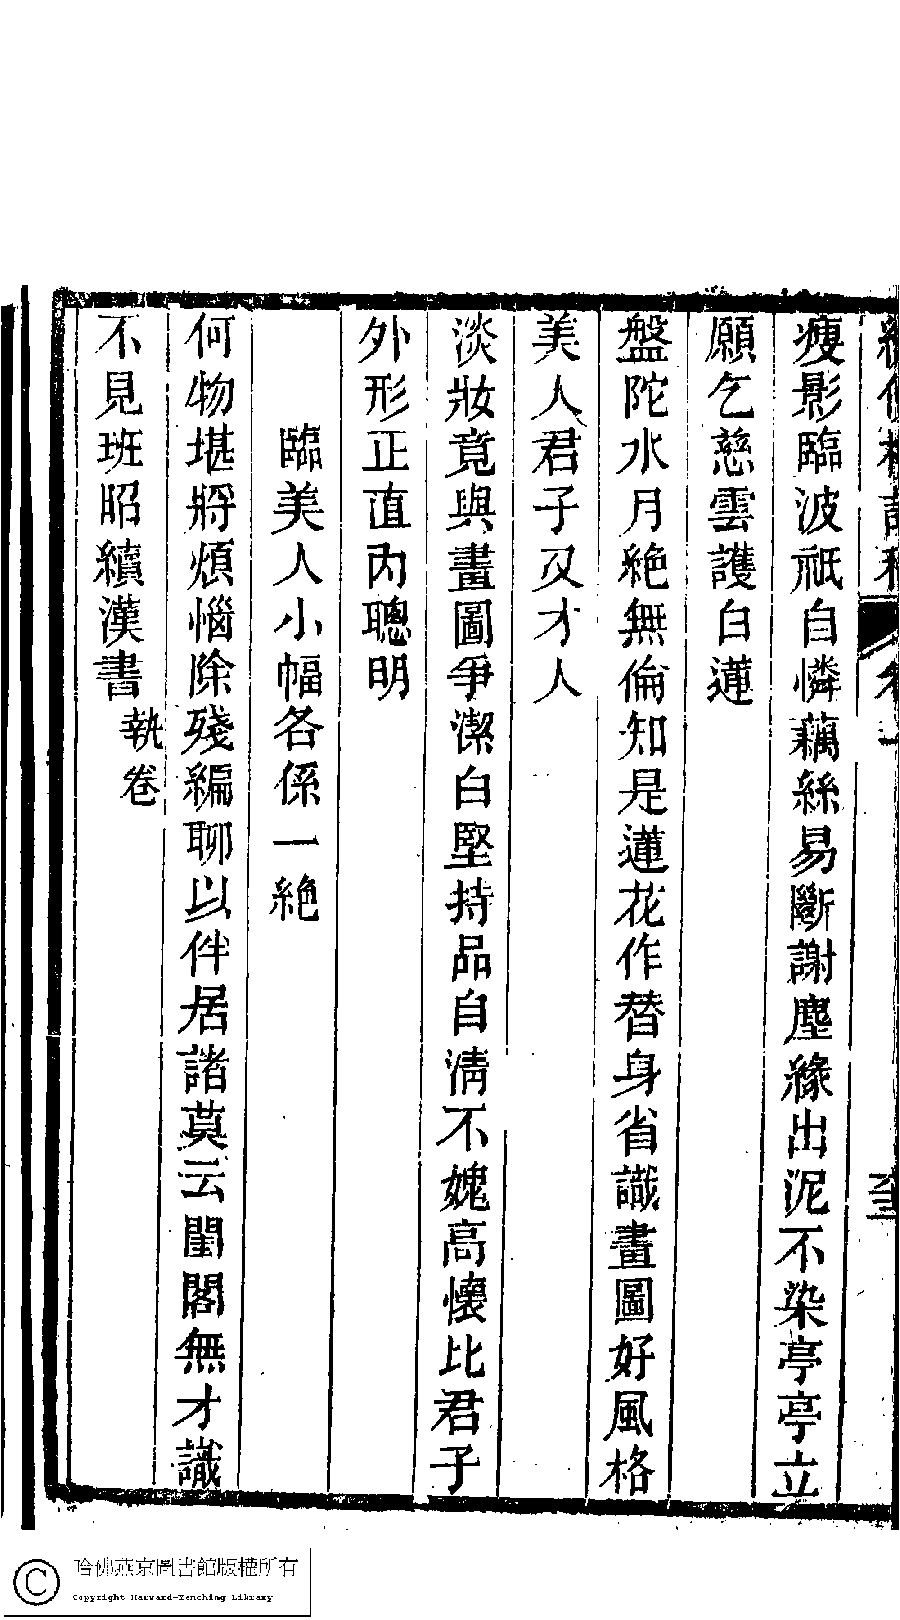 瘦影臨波祇自憐藕絲易斷謝塵緣出泥不染亭亭立
願乞慈雲護白蓮
盤陀水月絶無倫知是蓮花作替身省識畫圖好風格
美人君子又才人
淡妝竟與畫圖爭潔白堅持品自淸不媿高懷比君子
外形正直內聰明
臨美人小幅各係一絶
何物堪將煩惱除殘編聊以伴居諸莫云閨閣無才識
不見班昭續漢書執卷
哈佛燕京圖書館版權所有
Copyright Harvard-Yenching Library